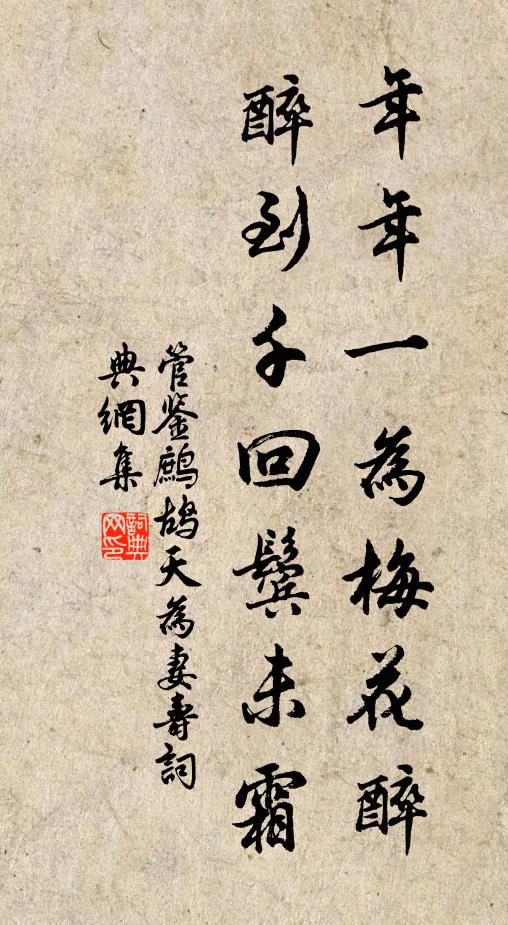 年年一為梅花醉
醉到千回鬢未霜
管鉴鹧鸪天為妻壽詞
典網集
詞典网印